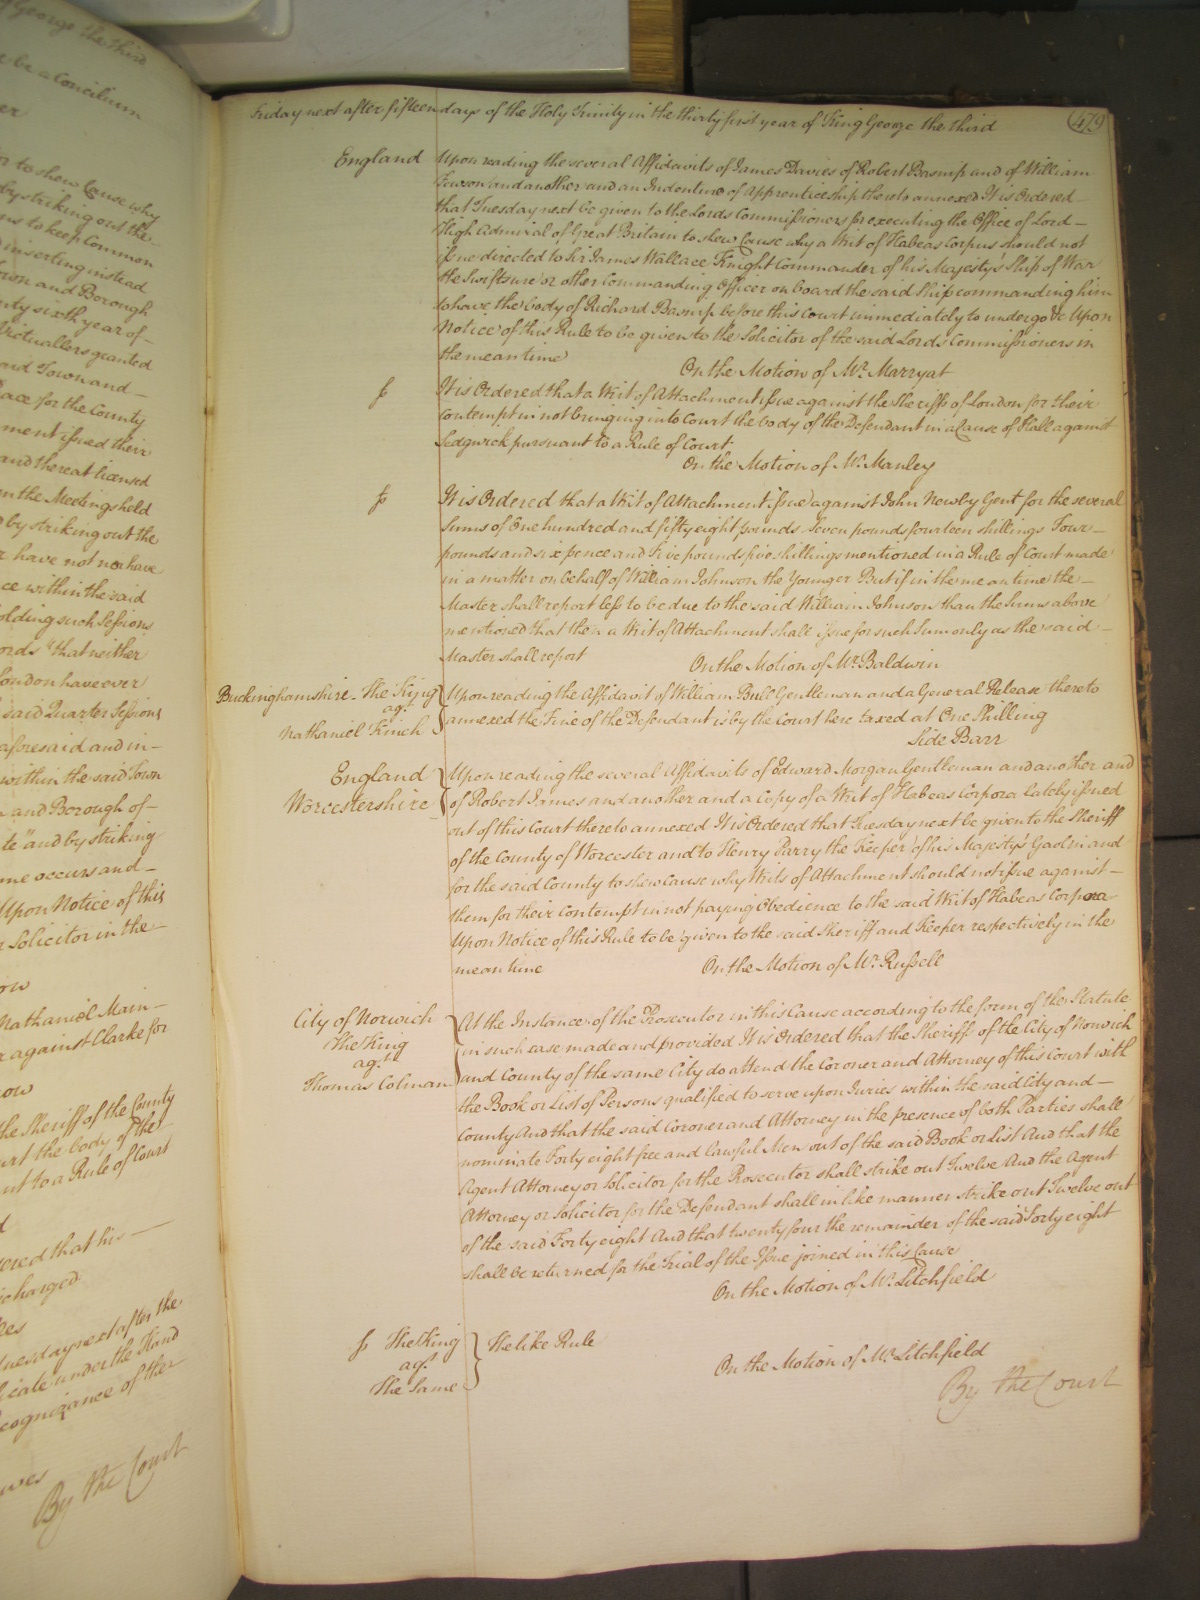 of George the third
be a Concilium
to shew Cause why
by striking out the
ns to keep Common
inserting instead
ion and Borough
nty sixth year of
Victuallers granted
said Town and
ace for the County
ment issued their
and thereat licensed
in the Meetings held
by striking out the
have not nor have
ce within the said
olding such Sessions
ords "that neither
London have ever
said Quarter Sessions
aforesaid and in
within the said Town
and Borough of
te" and by striking
me occurs and
Upon Notice of this
Solicitor in the
Nathaniel Main
against Clarke for
the Sheriff of the County
urt the body of the
nt to a Rule of Court
ered that his
scharged
Tuesday next after the
icate under the Hand
ecognizance of the
By the Court
Friday next after fifteen days of the Holy Trinity in the thirty first year of King George the third
479
England Upon reading the several Affidavits of James Davies of Robert Basnip and of William
Fowson and another and an Indenture of Apprenticeship thereto annexed It is Ordered
that Tuesday next be given to the Lords Commissioners for executing the Office of Lord
High Admiral of Great Britain to shew Cause why a Writ of Habeas Corpus should not
issue directed to Sir James Wallace Knight Commander of his Majesty's Ship of War
the Swiftsure or other Commanding Officer on board the said Ship commanding him
to have the body of Richard Basnip before this Court immediately to undergo &c Upon
Notice of this Rule to be given to the Solicitor of the said Lords Commissioners in
the mean time
On the Motion of Mr. Marryat
ss It is Ordered that a Writ of Attachment issue against the Sheriff of London for their
Contempt in not bringing into Court the body of the Defendant in a Cause of Hall against
Sedgwick pursuant to a Rule of Court
On the Motion of Mr. Manley
ss It is Ordered that a Writ of Attachment issue against John Newby Gent for the several
Sums of One hundred and fifty eight pounds Seven pounds fourteen shillings Four
pounds and six pence and Five pounds five shillings mentioned in a Rule of Court made
in a matter on behalf of William Johnson the Younger But if in the mean time the
Master shall report less to be due to the said William Johnson than the Sums above
mentioned that then a Writ of Attachment shall issue for such Sum only as the said
Master shall report
On the Motion of Mr. Baldwin
Buckinghamshire The King
agt.
Nathaniel Kinch
Upon reading the Affidavit of William Bull Gentleman and a General Release thereto
annexed the Fine of the Defendant is by the Court here taxed at One Shilling
Side Barr
England
Worcestershire
Upon reading the several Affidavits of Edward Morgan Gentleman and another and
of Robert James and another and a Copy of a Writ of Habeas Corpora lately issued
out of this Court thereto annexed It is Ordered that Tuesday next be given to the Sheriff
of the County of Worcester and to Henry Parry the Keeper of his Majesty's Gaol in and
for the said County to shew Cause why Writs of Attachment should not issue against
them for their Contempt in not paying Obedience to the said Writ of Habeas Corpora
Upon Notice of this Rule to be given to the said Sheriff and Keeper respectively in the
mean time
On the Motion of Mr. Russell
City of Norwich
The King
agt.
Thomas Colman
At the Instance of the Prosecutor in this Cause according to the form of the Statute
in such case made and provided It is Ordered that the Sheriff of the City of Norwich
and County of the same City do attend the Coroner and Attorney of this Court with
the Book or List of Persons qualified to serve upon Juries within the said City and
County And that the said Coroner and Attorney in the presence of both Parties shall
nominate Forty eight free and Lawful Men out of the said Book or List And that the
Agent Attorney or Solicitor for the Prosecutor shall strike out Twelve And the Agent
Attorney or Solicitor for the Defendant shall in like manner strike out Twelve out
of the said Forty eight And that twenty four the remainder of the said Forty eight
shall be returned for the Trial of the Issue joined in this Cause
On the Motion of Mr. Litchfield
ss The King
agt.
The Same
The like Rule
On the Motion of Mr. Litchfield
By the Court